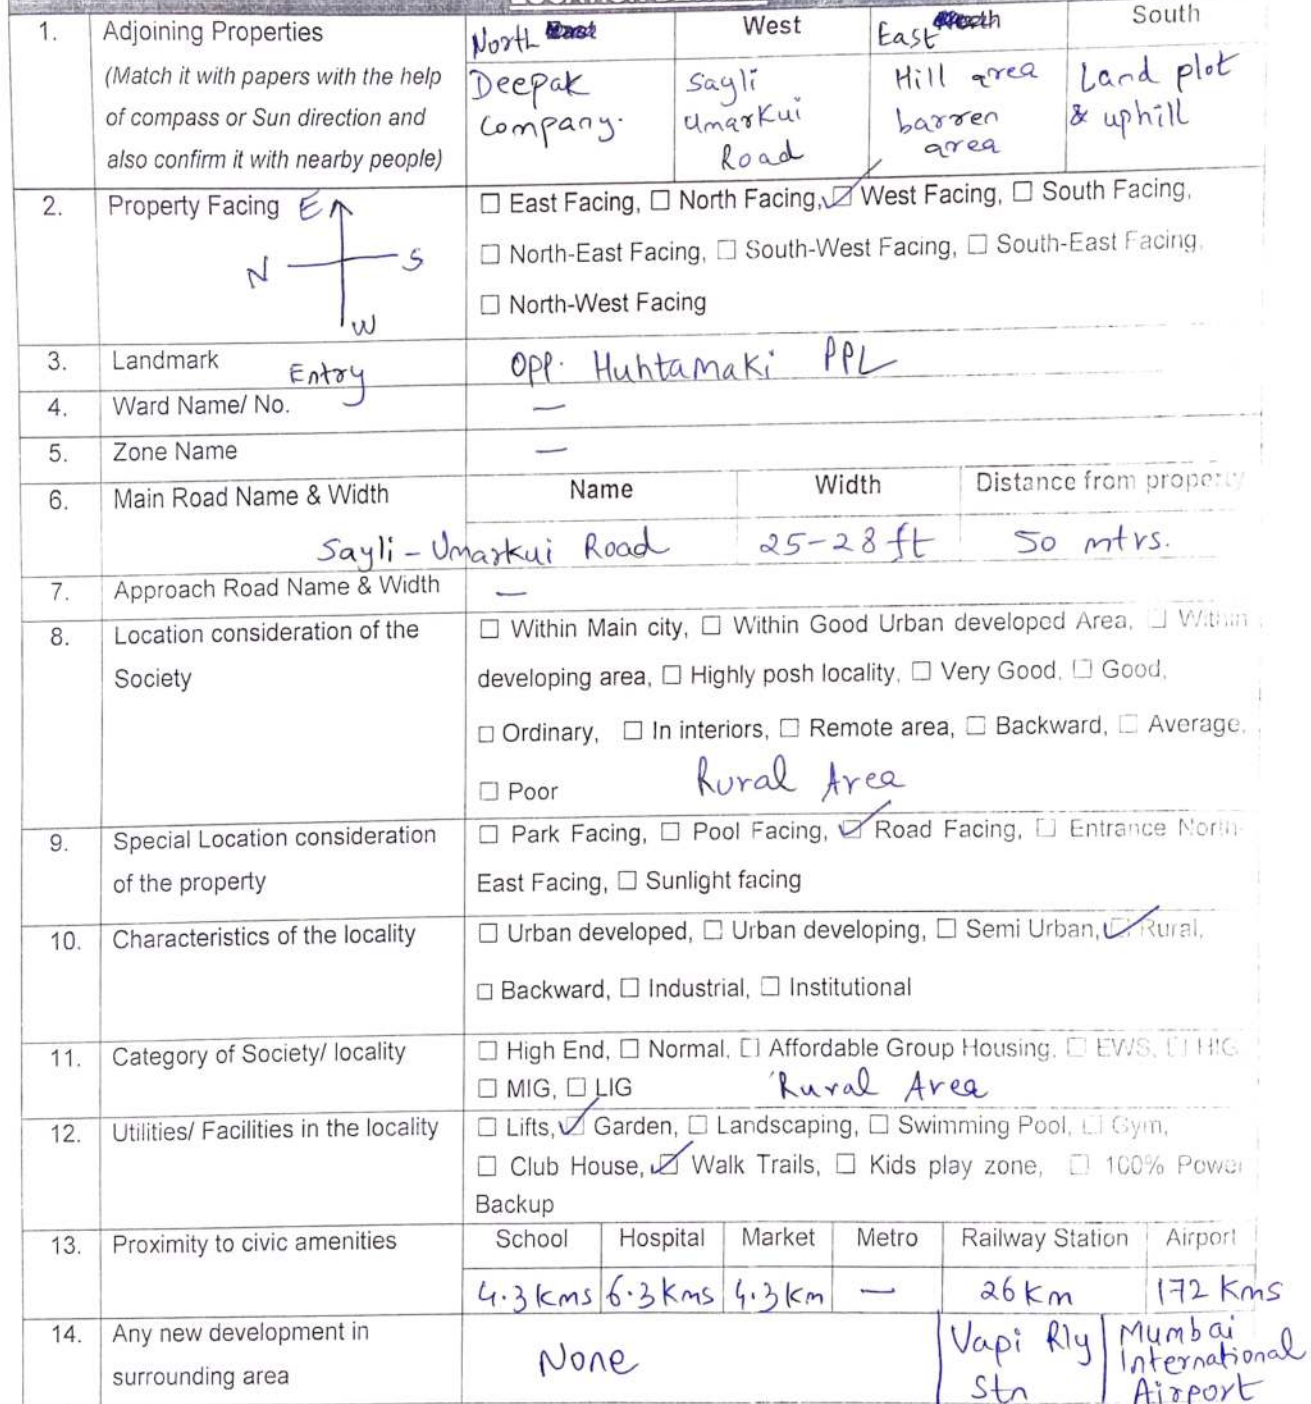 1. Adjoining Properties
(Match it with papers with the help
of compass or Sun direction and
also confirm it with nearby people)
North West East South
Deepak
Company.
Sayli
Umarkui
Road
Hill area
barren
area
Land plot
& uphill
2. Property Facing
E
N S
W
Entry
☐ East Facing, ☐ North Facing, ☑ West Facing, ☐ South Facing,
☐ North-East Facing, ☐ South-West Facing, ☐ South-East Facing,
☐ North-West Facing
3. Landmark Opp. Huhtamaki PPL
4. Ward Name/ No. —
5. Zone Name —
6. Main Road Name & Width Name Width Distance from property
Sayli-Umarkui Road 25-28 ft 50 mtrs.
7. Approach Road Name & Width —
8. Location consideration of the
Society
☐ Within Main city, ☐ Within Good Urban developed Area, ☐ Within
developing area, ☐ Highly posh locality, ☐ Very Good, ☐ Good,
☐ Ordinary, ☐ In interiors, ☐ Remote area, ☐ Backward, ☐ Average,
☐ Poor Rural Area
9. Special Location consideration
of the property
☐ Park Facing, ☐ Pool Facing, ☑ Road Facing, ☐ Entrance North-
East Facing, ☐ Sunlight facing
10. Characteristics of the locality
☐ Urban developed, ☐ Urban developing, ☐ Semi Urban, ☑ Rural,
☐ Backward, ☐ Industrial, ☐ Institutional
11. Category of Society/ locality
☐ High End, ☐ Normal, ☐ Affordable Group Housing, ☐ EWS, ☐ HIG
☐ MIG, ☐ LIG Rural Area
12. Utilities/ Facilities in the locality
☐ Lifts, ☑ Garden, ☐ Landscaping, ☐ Swimming Pool, ☐ Gym,
☐ Club House, ☑ Walk Trails, ☐ Kids play zone, ☐ 100% Power
Backup
13. Proximity to civic amenities
School Hospital Market Metro Railway Station Airport
4.3 kms 6.3 kms 4.3 km — 26 km 172 Kms
14. Any new development in
surrounding area
None
Vapi Rly
Stn
Mumbai
International
Airport